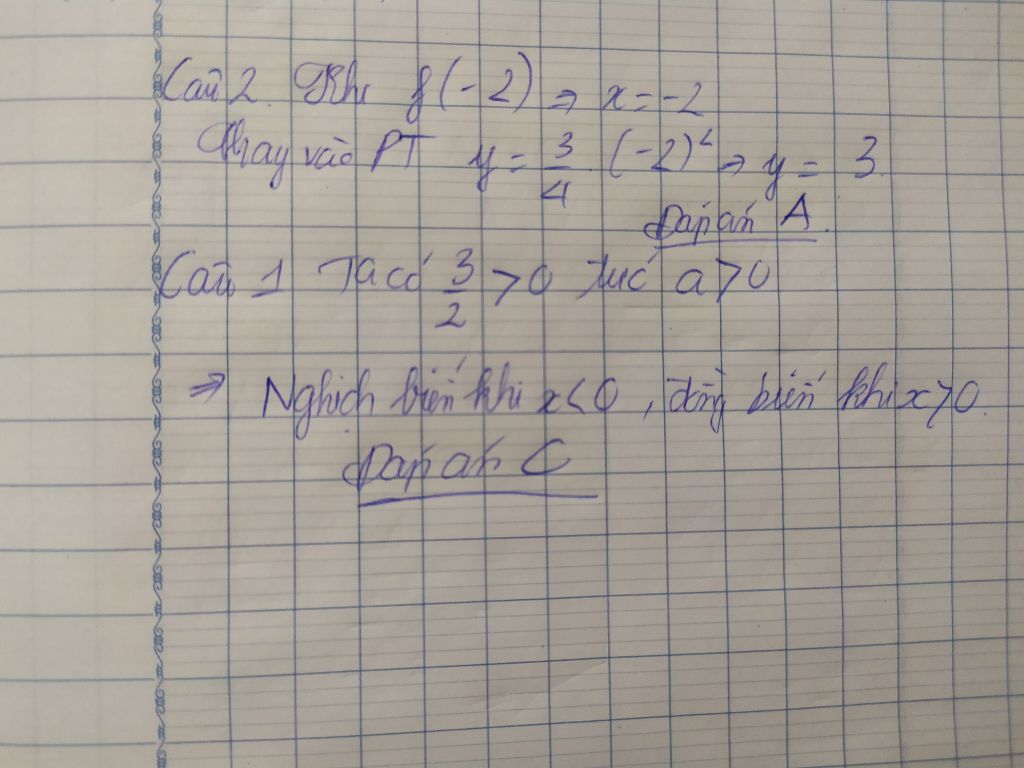 Câu 2. Khi f(-2) ⇒ x = -2
Thay vào PT y = 3/4 . (-2)² ⇒ y = 3.
Đáp án A.
Câu 1 Ta có 3/2 > 0 tức a > 0
⇒ Nghịch biến khi x < 0, đồng biến khi x > 0.
Đáp án C